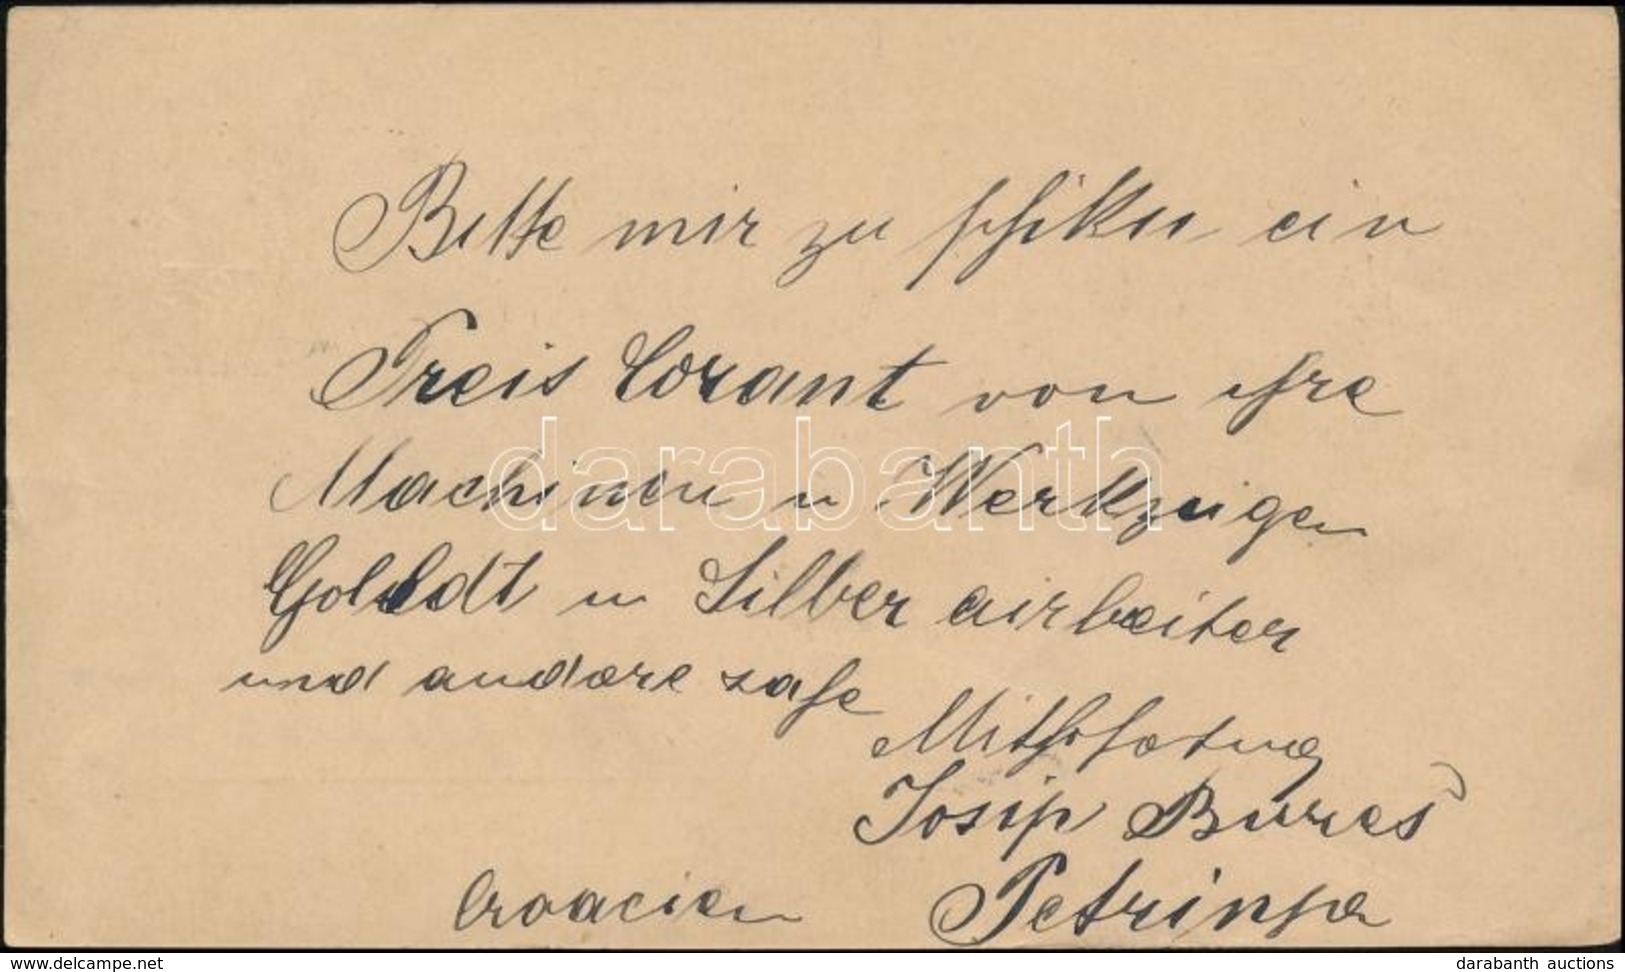 Bitte mir zu schiken ein
Preis Corant von ihre
Machinen u Werkzeigen
Goldt u Silber airbeiter
und andere sahe
Mit Hohatung
Josip Bureš
Croacien Petrinja
darabanth
delcampe.net
darabanth auctions